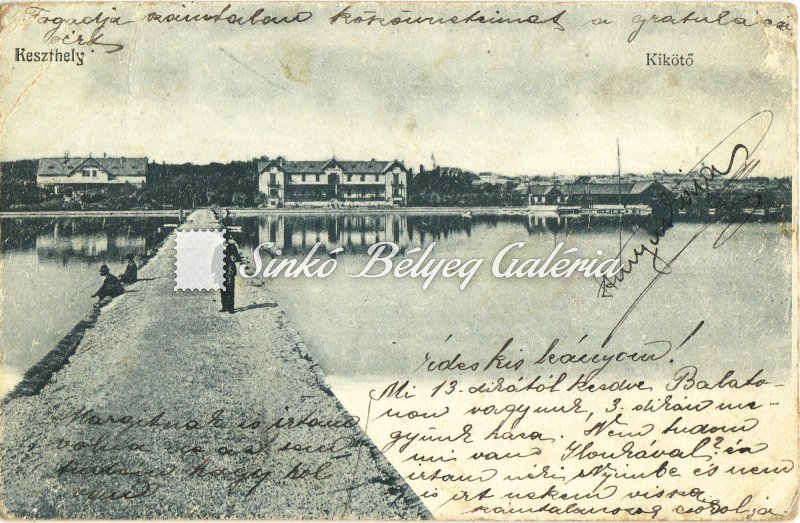 Fogadja számtalan köszönetemet a gratulációért
Keszthely
Kikötő
Sinkó Bélyeg Galéria
Hunyady
Édes kis leányom!
Mi 13.-dikától kezdve Balato-
non vagyunk, 3.-dikán me-
gyünk haza. Nem tudom
mi van Ilonkával? én
irtam néki és nem
is irt nekem vissza
számtalanszor csókolja
Margitnak is irtam
volna is azt sem
tudom hogy hol
van